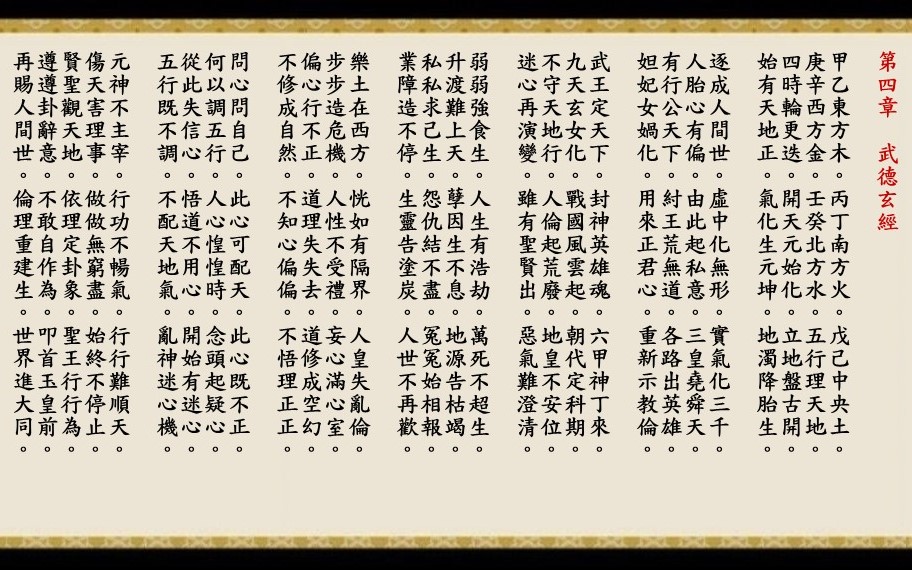 第四章　武德玄經
甲乙東方木。丙丁南方火。戊己中央土。
庚辛西方金。壬癸北方水。五行理天地。
四時輪更迭。開天元始化。立地盤古開。
始有天地正。氣化生元坤。地濁降胎生。
逐成人間世。虛中化無形。實氣化三千。
人胎心有偏。由此起私意。三皇堯舜天。
有行公天下。紂王荒無道。各路出英雄。
妲妃女媧化。用來正君心。重新示教倫。
武王定天下。封神英雄魂。六甲神丁來。
九天玄女化。戰國風雲起。朝代定科期。
不守天地行。人倫起荒廢。地皇不安位。
迷心再演變。雖有聖賢出。惡氣難澄清。
弱弱強食生。人生有浩劫。萬死不超生。
升渡難上天。孽因生不息。地源告枯竭。
私私求己生。怨仇結不盡。冤冤始相報。
業障造不停。生靈告塗炭。人世不再歡。
樂土在西方。恍如有隔界。人皇失亂倫。
步步造危機。人性不受禮。妄心滿心室。
偏心行不正。道理失失去。道修成空幻。
不修成自然。不知心偏偏。不悟理正正。
問心問自己。此心可配天。此心既不正。
何以調五行。人心惶惶時。念頭起疑心。
從此失信心。悟道不用心。開始有迷心。
五行既不調。不配天地氣。亂神迷心機。
元神不主宰。行功不暢氣。行行難順天。
傷天害理事。做做無窮盡。始終不停止。
賢聖觀天地。依理定卦象。聖王行行為。
遵遵卦辭意。不敢自作為。叩首玉皇前。
再賜人間世。倫理重建生。世界進大同。